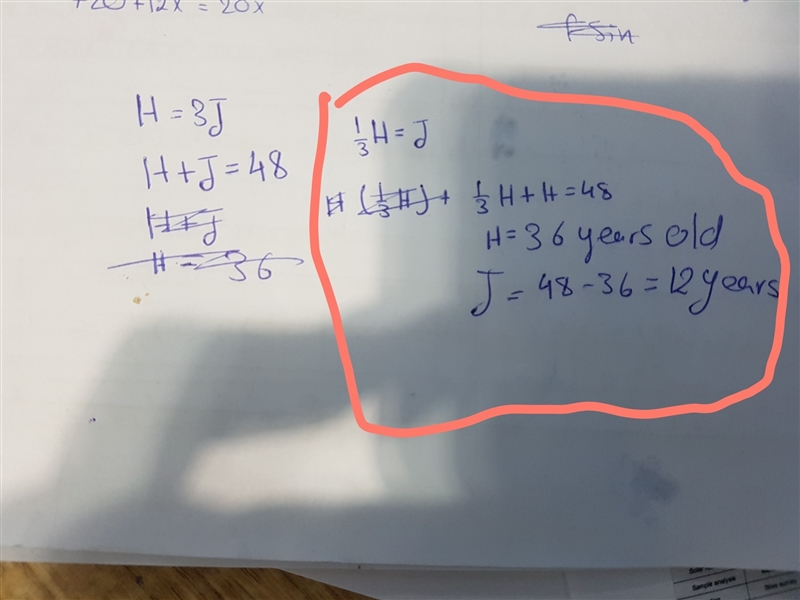 +20+12x = 20x
H = 3J
H + J = 48
H + J
H = 36
1/3 H = J
H (1/3 H) + 1/3 H + H = 48
H = 36 years old
J = 48 - 36 = 12 years
Sample analysis